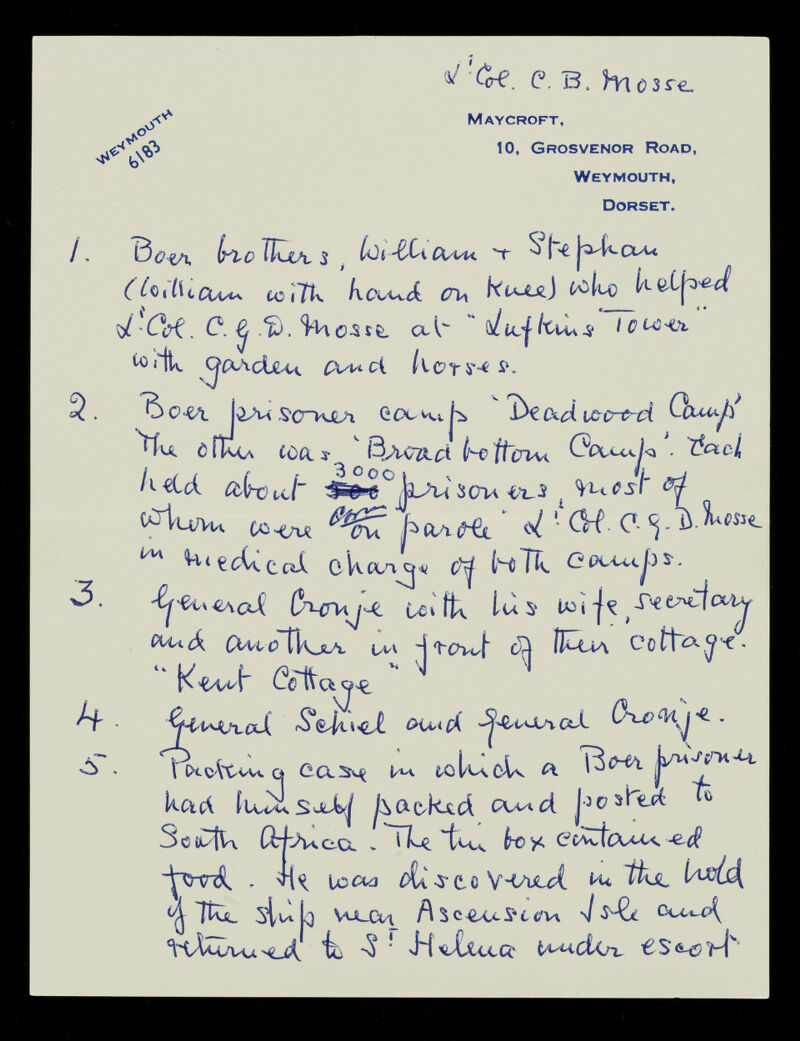 Lt. Col. C. B. Mosse
WEYMOUTH
6183
MAYCROFT,
10, GROSVENOR ROAD,
WEYMOUTH,
DORSET.
1. Boer brothers, William + Stephan
(William with hand on knee) who helped
Lt. Col. C. G. D. Mosse at "Lufkins Tower"
with garden and horses.
2. Boer prisoner camp 'Deadwood Camp'
The other was 'Broadbottom Camp'. Each
3000
held about 300 prisoners, most of
whom were on parole Lt. Col. C. G. D. Mosse
in medical charge of both camps.
3. General Cronje with his wife, secretary
and another in front of their cottage.
"Kent Cottage"
4. General Schiel and General Cronje.
5. Packing case in which a Boer prisoner
had himself packed and posted to
South Africa. The tin box contained
food. He was discovered in the hold
of the ship near Ascension Isle and
returned to St. Helena under escort